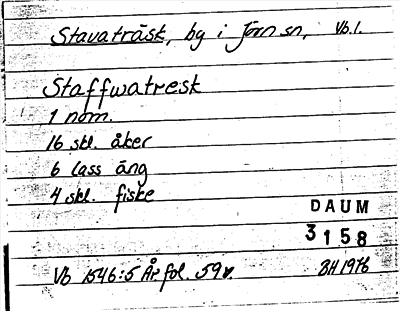 Stavaträsk, by i Jörn sn, Vb.l.
Staffwatresk
1 nam.
16 skl. åker
6 lass äng
4 skl. fiske
DAUM
3158
Vb 1546:5 År fol. 59v.
BH 1976